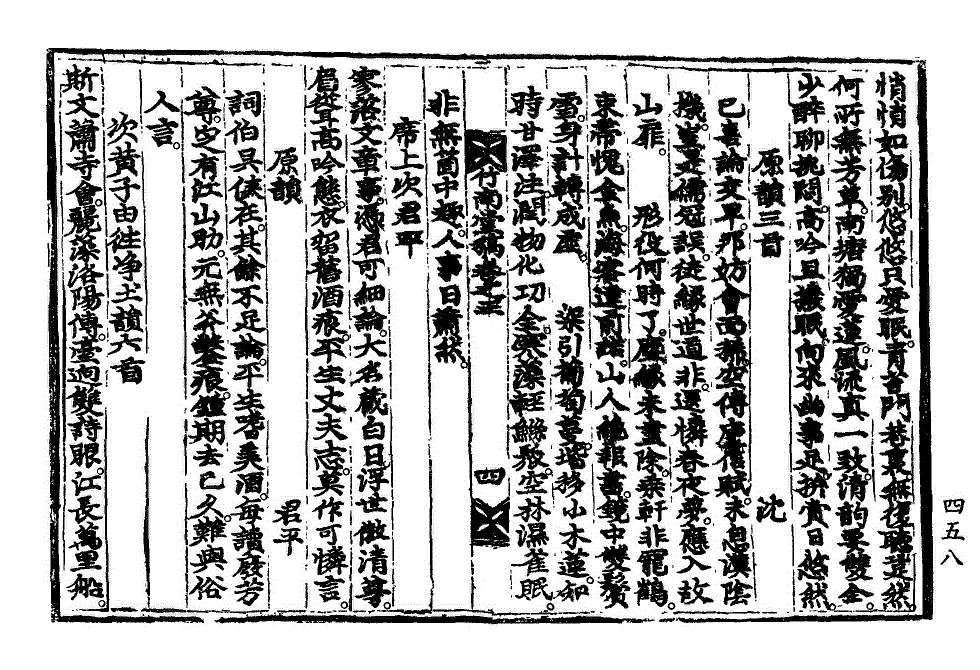 悄悄如傷別悠悠只愛眠青苔門巷裏無復聽蛩然
何所無芳草南塘獨愛蓮風流真一致清韵果雙全
少醉聊挑悶高吟且潑眠向來幽事足折賞日悠然
原韻三首　沈
已喜論交早那妨會面稀空傳康信賦未息漢陰
機豈是儒冠誤從緣世道非還憐春夜夢應入故
山扉　形役何時了塵緣未盡除乘軒非寵鶴
束帶愧金魚海客遺前諾山人絶報書鏡中雙鬢
雪身計轉成虛　梁引葡萄蔓堦移小木蓮知
時甘澤注潤物化功全寒藻輕鰷聚空林濕雀眠
竹南堂稿卷之　四
非無箇中趣人事日蕭然
席上次君平
寥落文章事憑君可細論大名藏白日浮世傲清尊
眉從耳高吟態衣留舊酒痕平生丈夫志莫作可憐言
原韻　君平
詞伯具俵在其餘不足論平生嗜美酒每讀廢芳
尊定有江山助元無斧鑿痕鍾期去已久難與俗
人言
次黃子由徃淨土韻六首
斯文蕭寺會麗藻洛陽傳臺逈雙詩眼江長萬里船
四五八